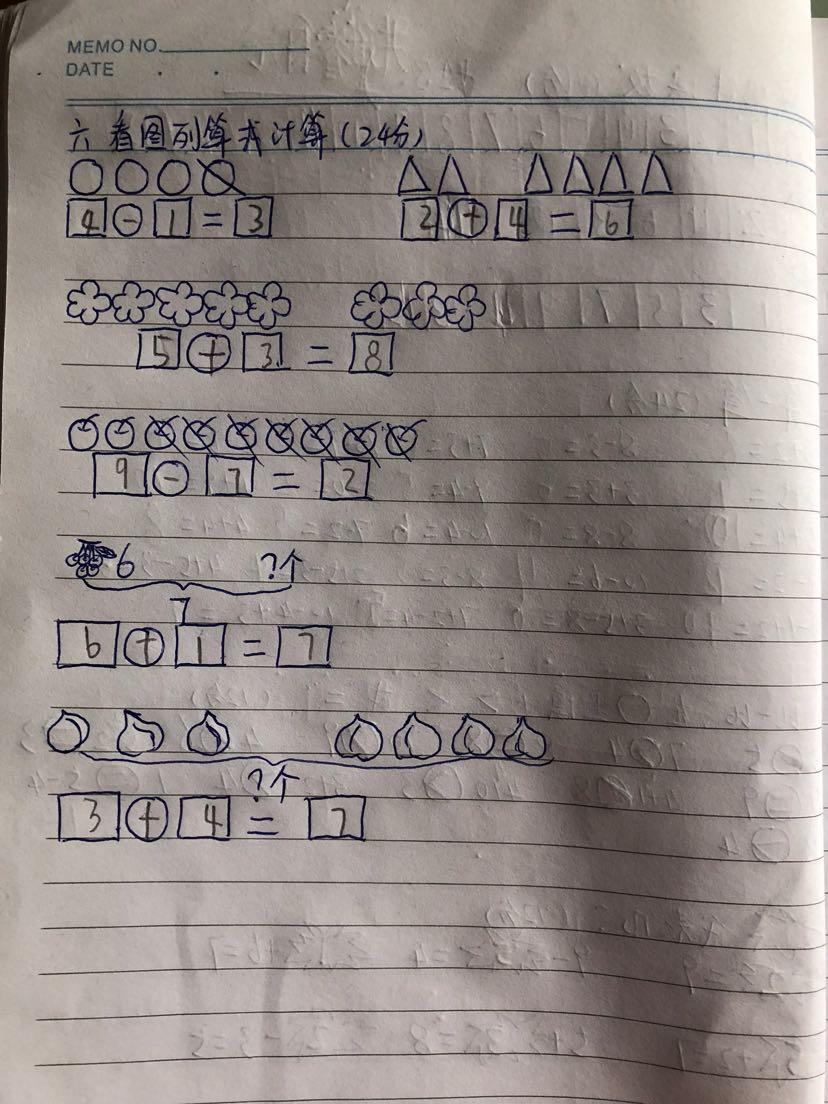 MEMO NO.
DATE . .
六 看图列算式计算(24分)
4 - 1 = 3 2 + 4 = 6
5 + 3 = 8
9 - 7 = 2
6 ?个
7
6 + 1 = 7
?个
3 + 4 = 7